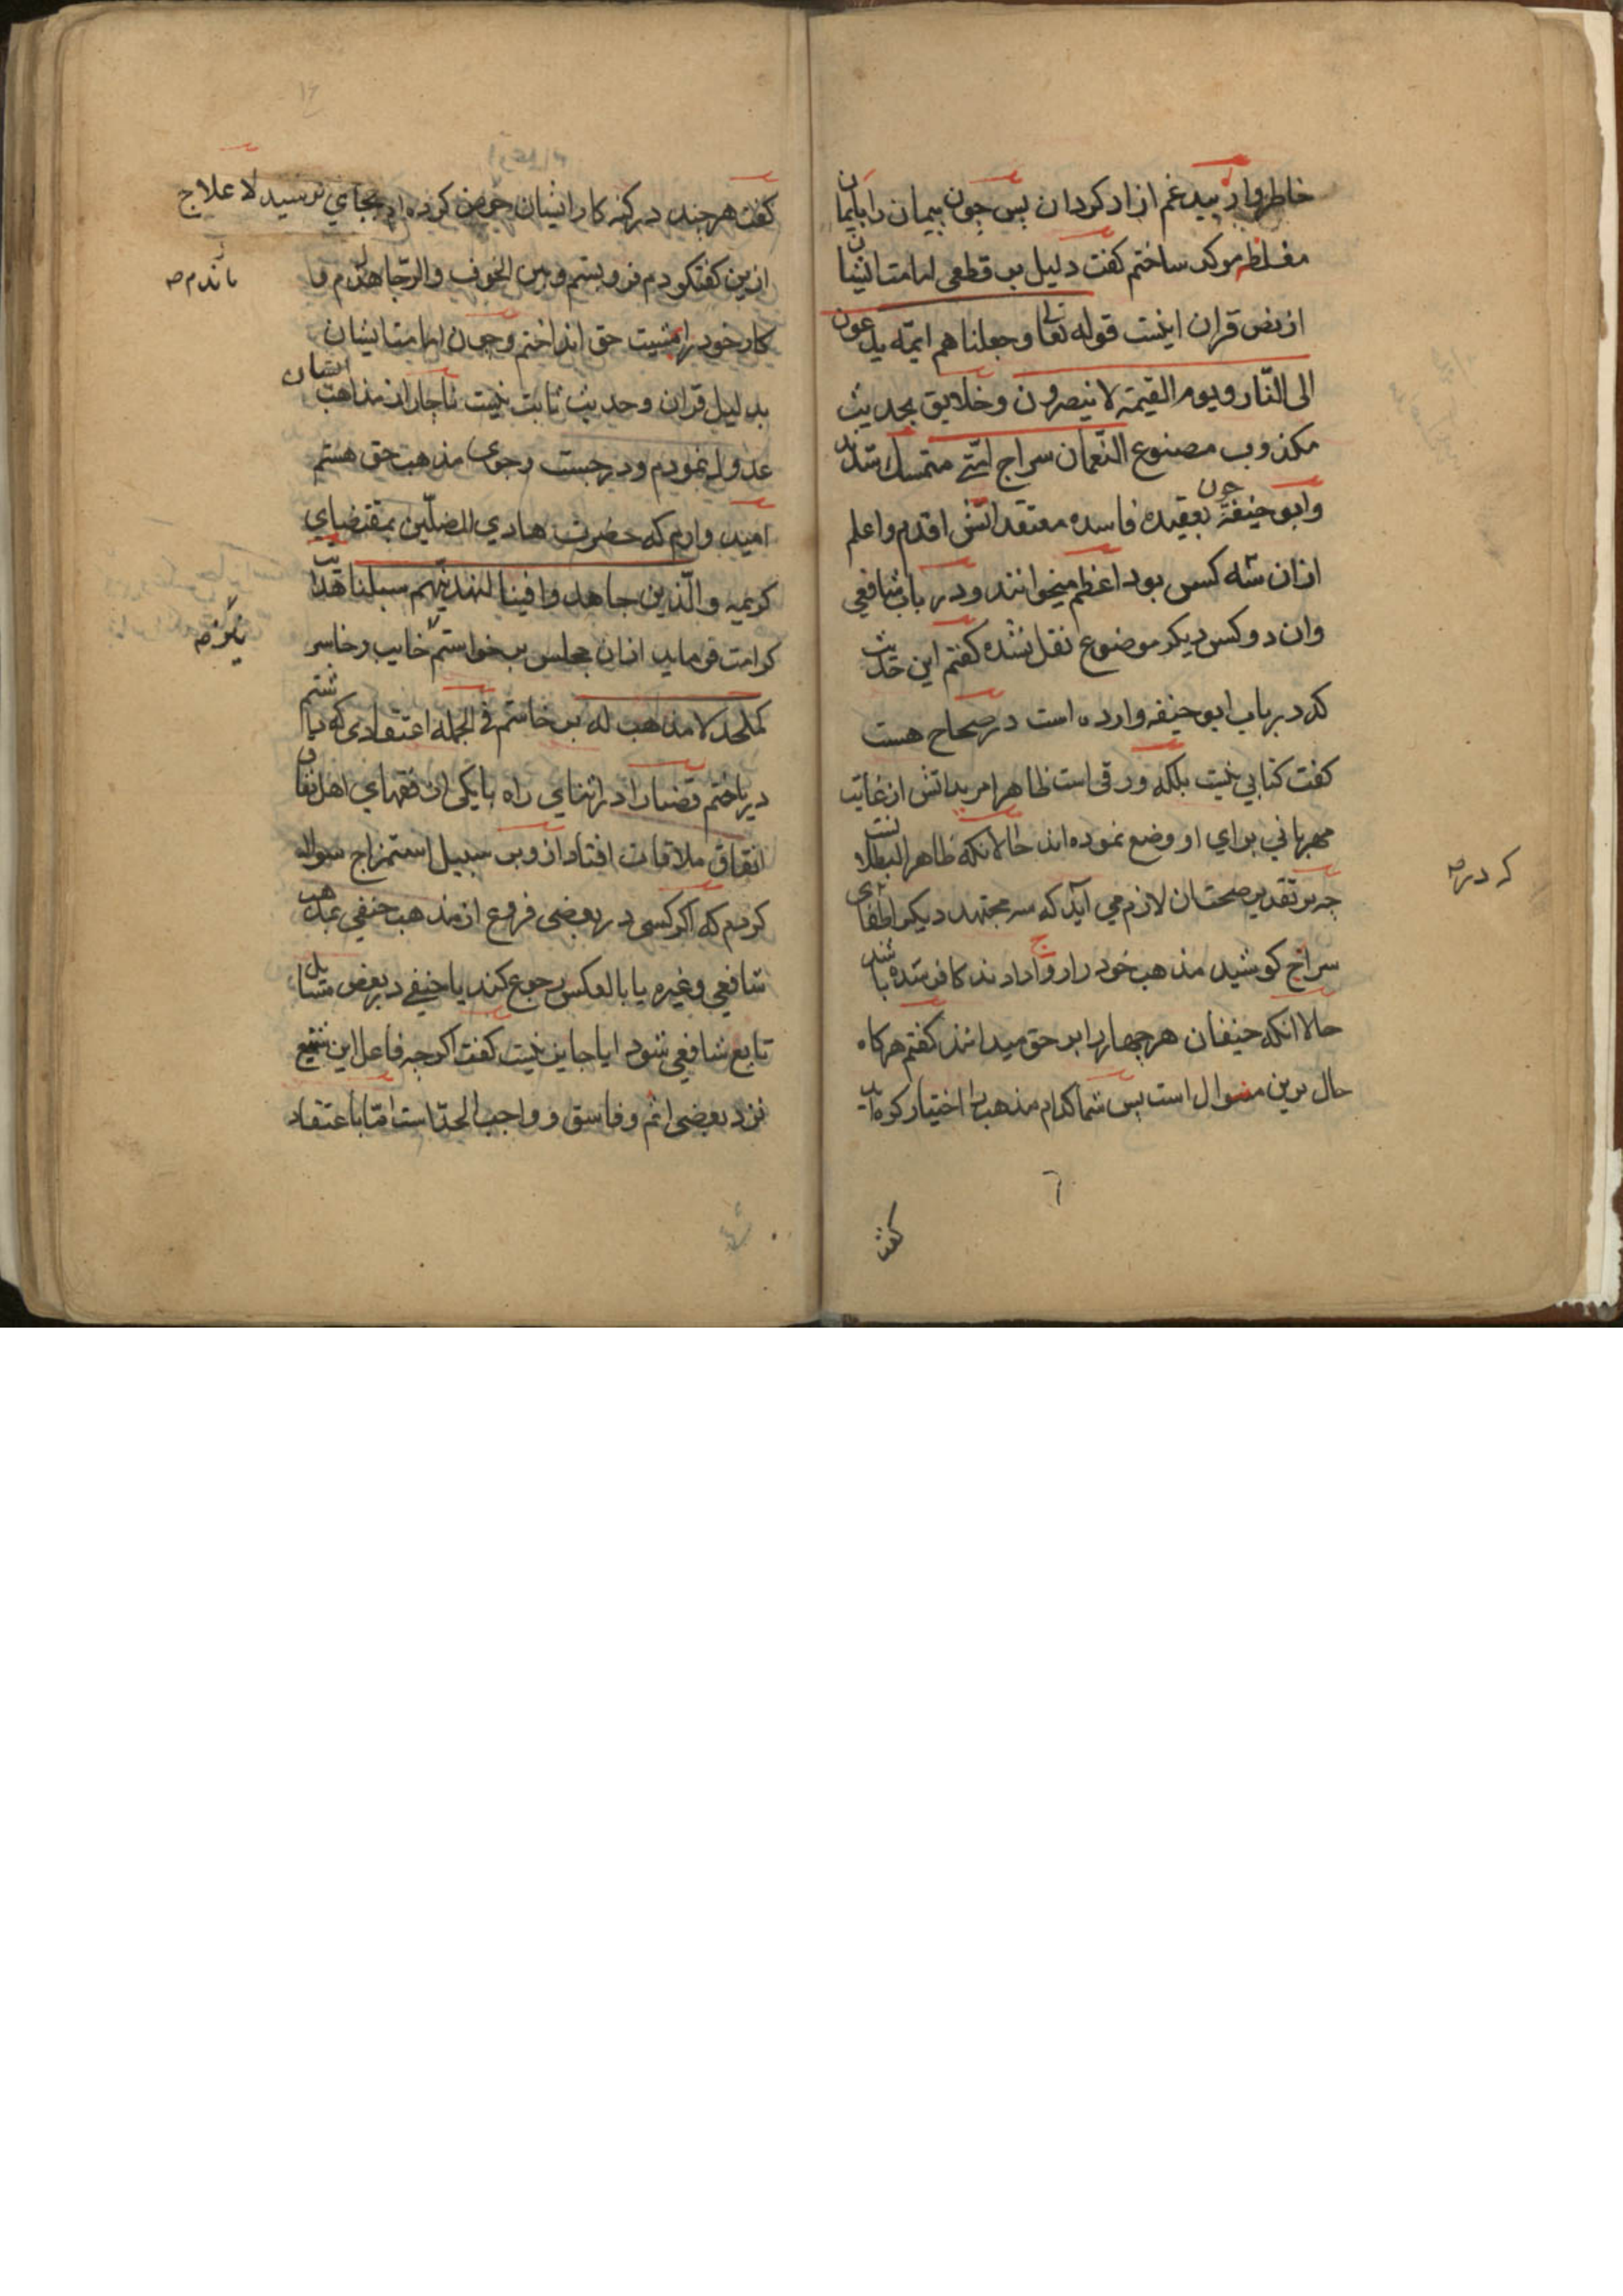 خاطر مرا از بید غم ازاد کردان بس جون بیمان را بایمان
مغلظ موکد ساختم کفت دلیل بر قطعی امامت ایشان
از نص قران اینست قوله تعالی وجعلناهم ایمّة یدعون
الی النّار ویوم القیمة لا ینصرون وخلایق بحدیث
مکذوب مصنوع النّعمان سراج امّتی متمسک شدند
وابو حنیفة جون بعقیده فاسده معتقدانش اقدم واعلم
ازان سه کس بود اعظم میخوانند ودر باب شافعی
وان دو کس دیکر موضوع نقل نشده کفتم این حدیث
که در باب ابو حنیفه وارده است در صحاح هست
کفت کتابی نیست بلکه ورقی است ظاهرا مریدانش از غایت
مهربانی برای او وضع نموده اند حالانکه ظاهر البطلانست
جه بر تقدیر صحتان لازم می آید که سه مجتهد دیکر اطفای
که در ص
سراج کوشید مذهب خود را رواج دادند کافر شده باشند
حالا انکه حنیفان هر جهار را بر حق میدانند کفتم هرکاه
حال برین منوال است بس شما کدام مذهب را اختیار کرده اید
کفت
کفت هرجند در کنه کار ایشان خوض کرده ام بجای نرسید لا علاج
ازین کفتکو دم فرو بستم وبین الخوف والرّجا
ماندم ص
کار خود را بمشیت حق انداختم وجون امامت ایشان
بدلیل قران وحدیث ثابت نیست ناجار از مذاهب ایشان
عدول نمودم ودر جست وجوی مذهب حق هستم
امید وارم که حضرت هادی المضلّین بمقتضیای
کریمه والّذین جاهدوا فینا لنهدینّهم سبلنا هدایت
کرامت فرماید ازان مجلس برخواستم خایب وخاسر
کملحد لا مذهب له بر خاستم فی الجمله اعتقادی که داشتم
در باختم قضا را در اثنای راه با یکی از فقهای اهل نفاق
اتفاق ملاقات افتاد ازو بر سبیل استمزاج سوال
کردم که اکر کسی در بعضی فروع از مذهب حنفی بمذهب
شافعی وغیره یا بالعکس رجوع کند یا حنیفی در بعض مسایل
تابع شافعی شود ایا جایز نیست کفت اکرجه فاعل این شنیع
نزد بعضی اثم وفاسق وواجب الحدّ است امّا باعتقاد